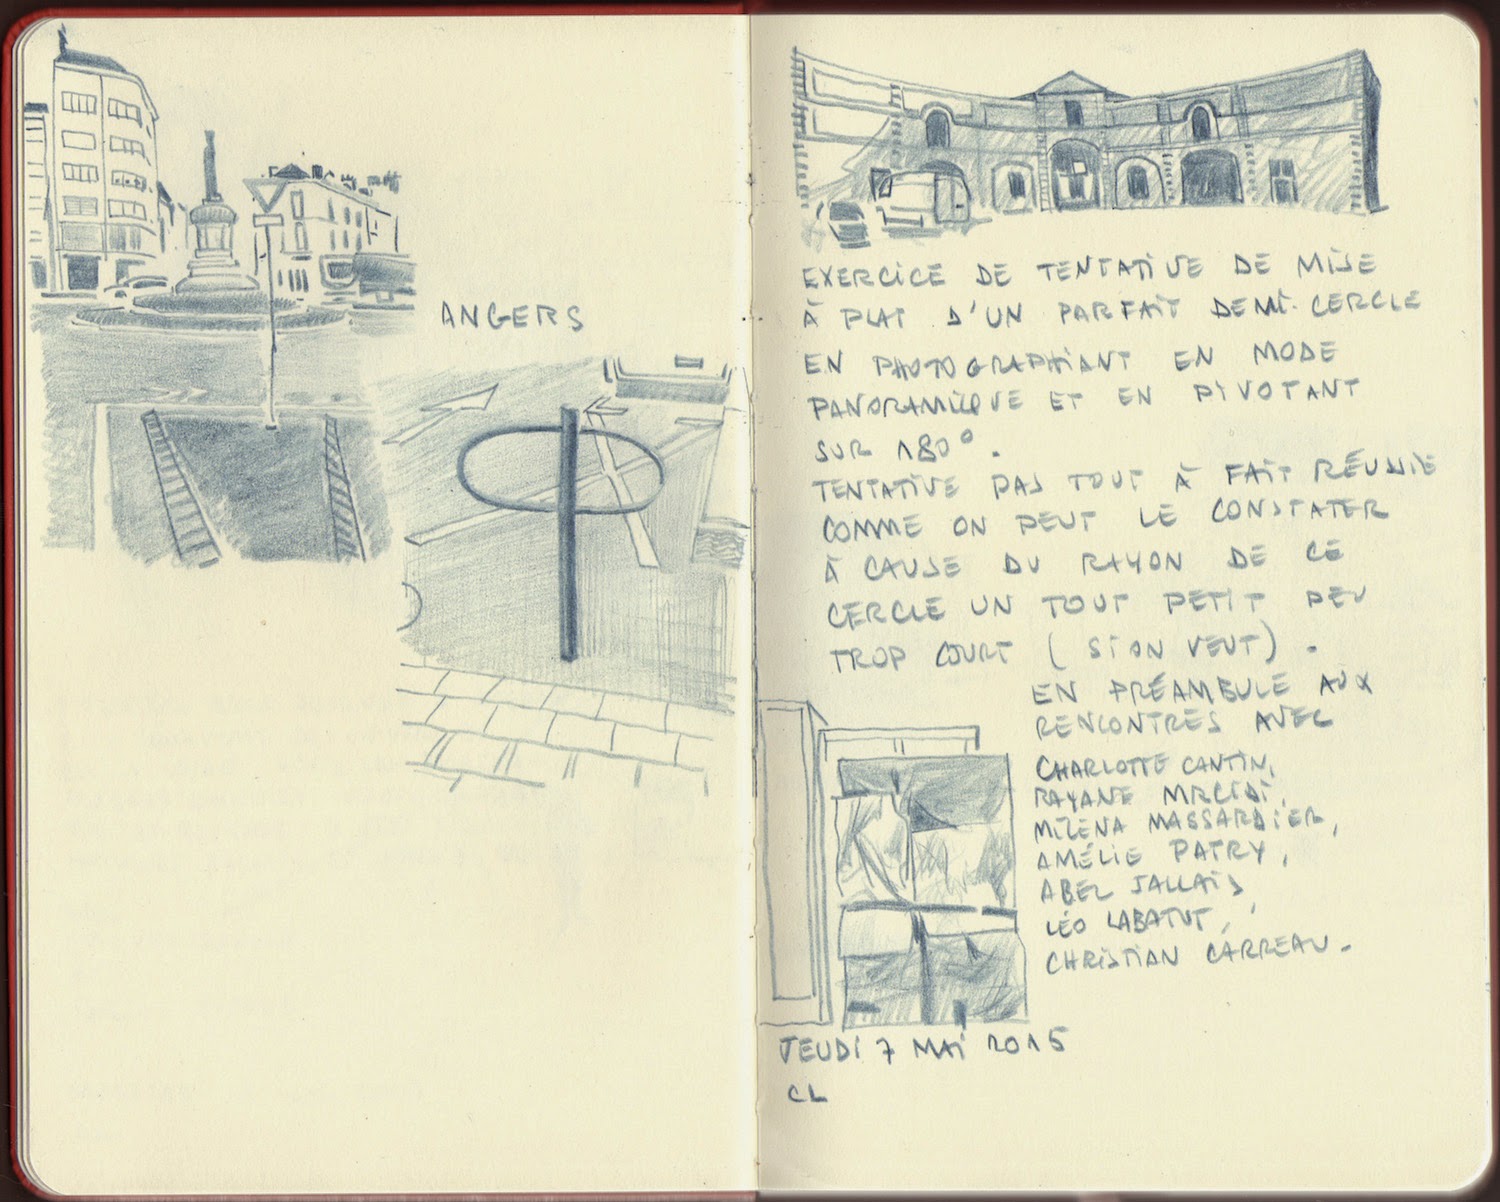 ANGERS
EXERCICE DE TENTATIVE DE MISE
À PLAT D'UN PARFAIT DEMI-CERCLE
EN PHOTOGRAPHIANT EN MODE
PANORAMIQUE ET EN PIVOTANT
SUR 180°.
TENTATIVE PAS TOUT À FAIT RÉUSSIE
COMME ON PEUT LE CONSTATER
À CAUSE DU RAYON DE CE
CERCLE UN TOUT PETIT PEU
TROP COURT (SI ON VEUT).
EN PRÉAMBULE AUX
RENCONTRES AVEC
CHARLOTTE CANTIN,
RAYANE
MILENA MASSARDIER,
AMÉLIE PATRY,
ABEL JALLAIS,
LÉO LABATUT,
CHRISTIAN CARREAU.
JEUDI 7 MAI 2015
CL